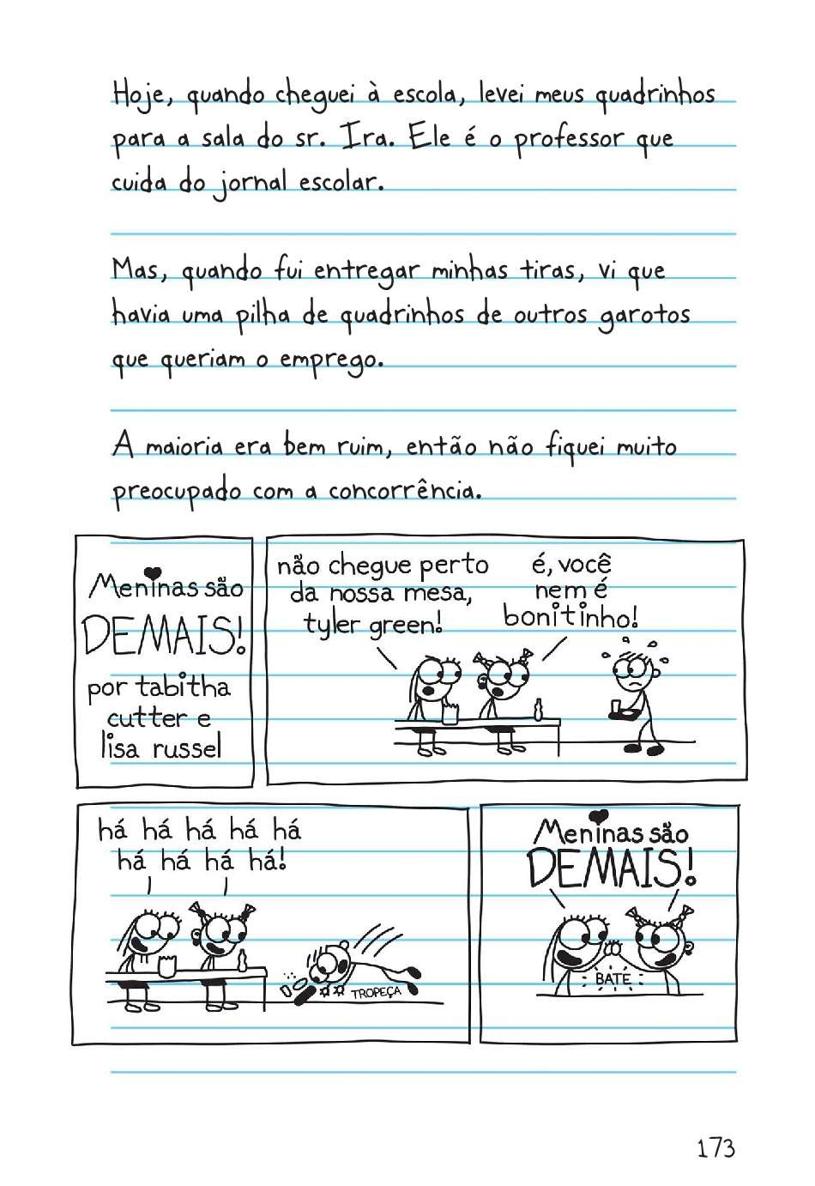 Hoje, quando cheguei à escola, levei meus quadrinhos
para a sala do sr. Ira. Ele é o professor que
cuida do jornal escolar.
Mas, quando fui entregar minhas tiras, vi que
havia uma pilha de quadrinhos de outros garotos
que queriam o emprego.
A maioria era bem ruim, então não fiquei muito
preocupado com a concorrência.
Meninas são
DEMAIS!
por tabitha
cutter e
lisa russel
não chegue perto
da nossa mesa,
tyler green!
é, você
nem é
bonitinho!
há há há há há
há há há há!
TROPEÇA
Meninas são
DEMAIS!
BATE
173